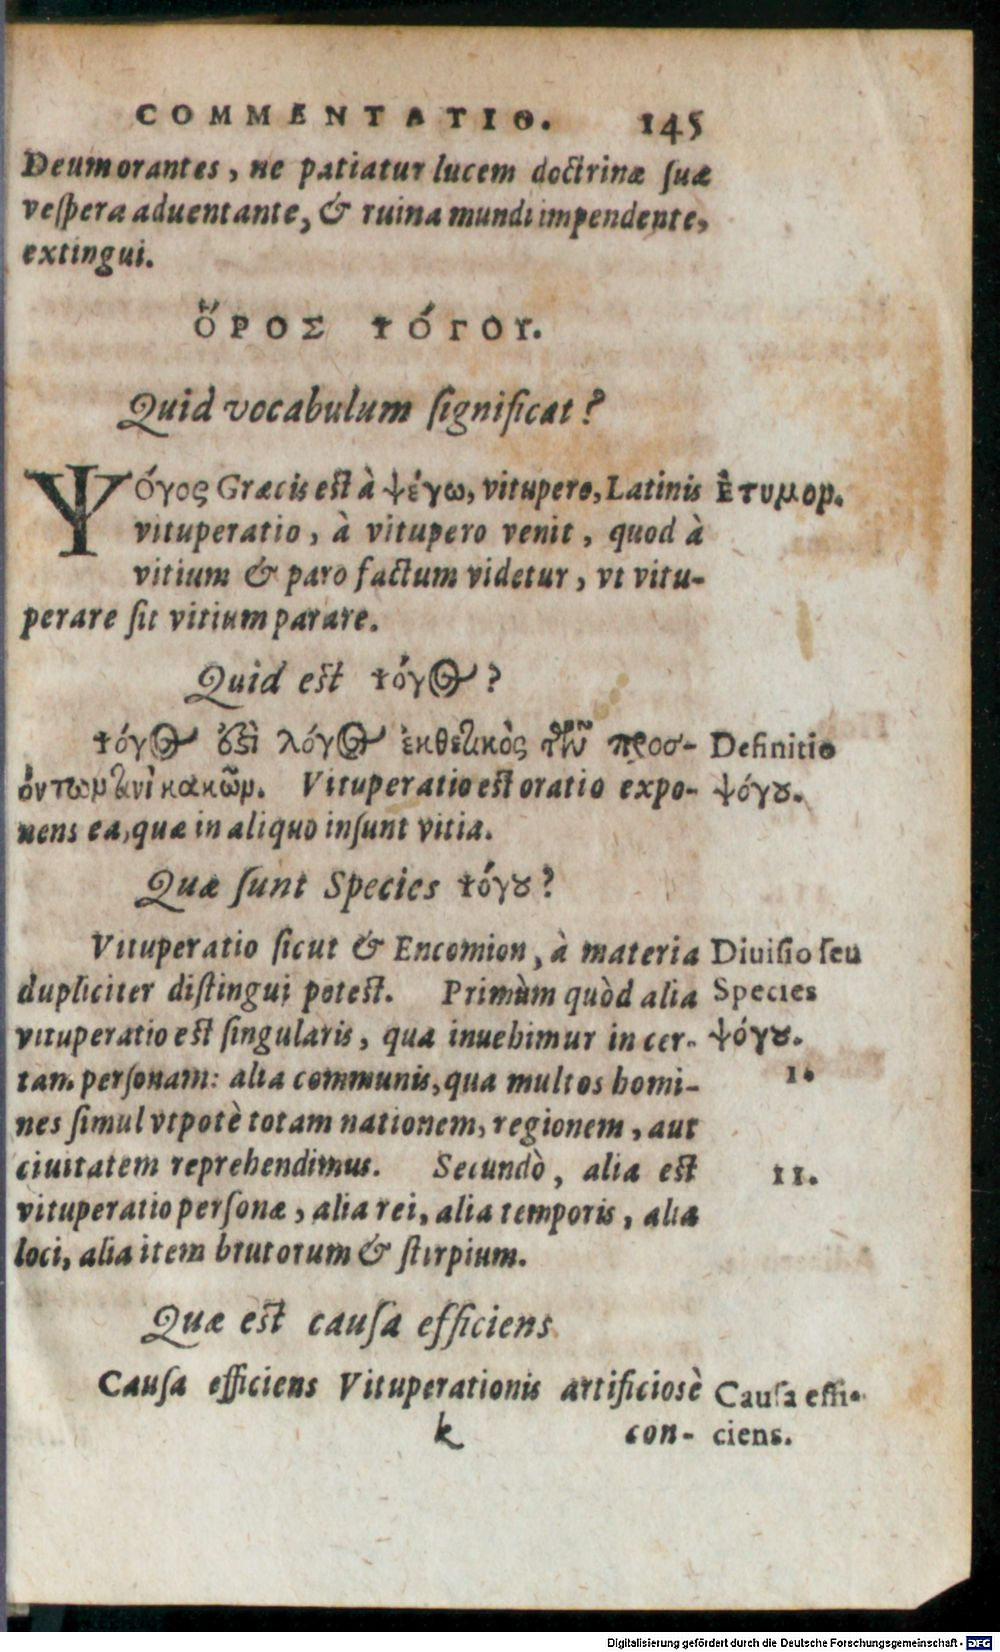 COMMENTATIO. 145
Deum orantes, ne patiatur lucem doctrinæ ſuæ
veſpera aduentante, & ruina mundi impendente,
extingui.
ὍΡΟΣ ΨΌΓΟΥ.
Quid vocabulum ſignificat?
Ψόγος Græcis est à ψέγω, vitupero, Latinis
Ἐτυμορ.
vituperatio, à vitupero venit, quod à
vitium & paro factum videtur, vt vitu-
perare ſit vitium parare.
Quid est ψόγος?
ψόγος ἐστὶ λόγος ἐκθετικὸς τῶν προσ-
όντωμ τινὶ κακῶμ. Vituperatio est oratio expo-
nens ea, quæ in aliquo inſunt vitia.
Definitio
ψόγȣ.
Quæ ſunt Species ψόγȣ?
Vituperatio ſicut & Encomion, à materia
dupliciter diſtingui potest. Primùm quòd alia
vituperatio est ſingularis, qua inuehimur in cer-
tam perſonam: alia communis, qua multos homi-
nes ſimul vtpotè totam nationem, regionem, aut
ciuitatem reprehendimus. Secundò, alia est
vituperatio perſonæ, alia rei, alia temporis, alia
loci, alia item brutorum & ſtirpium.
Diuiſio ſeu
Species
ψόγȣ.
1.
11.
Quæ est cauſa efficiens
Cauſa efficiens Vituperationis artificiosè
Cauſa effi-
ciens.
k con-
Digitalisierung gefördert durch die Deutsche Forschungsgemeinschaft - DFG